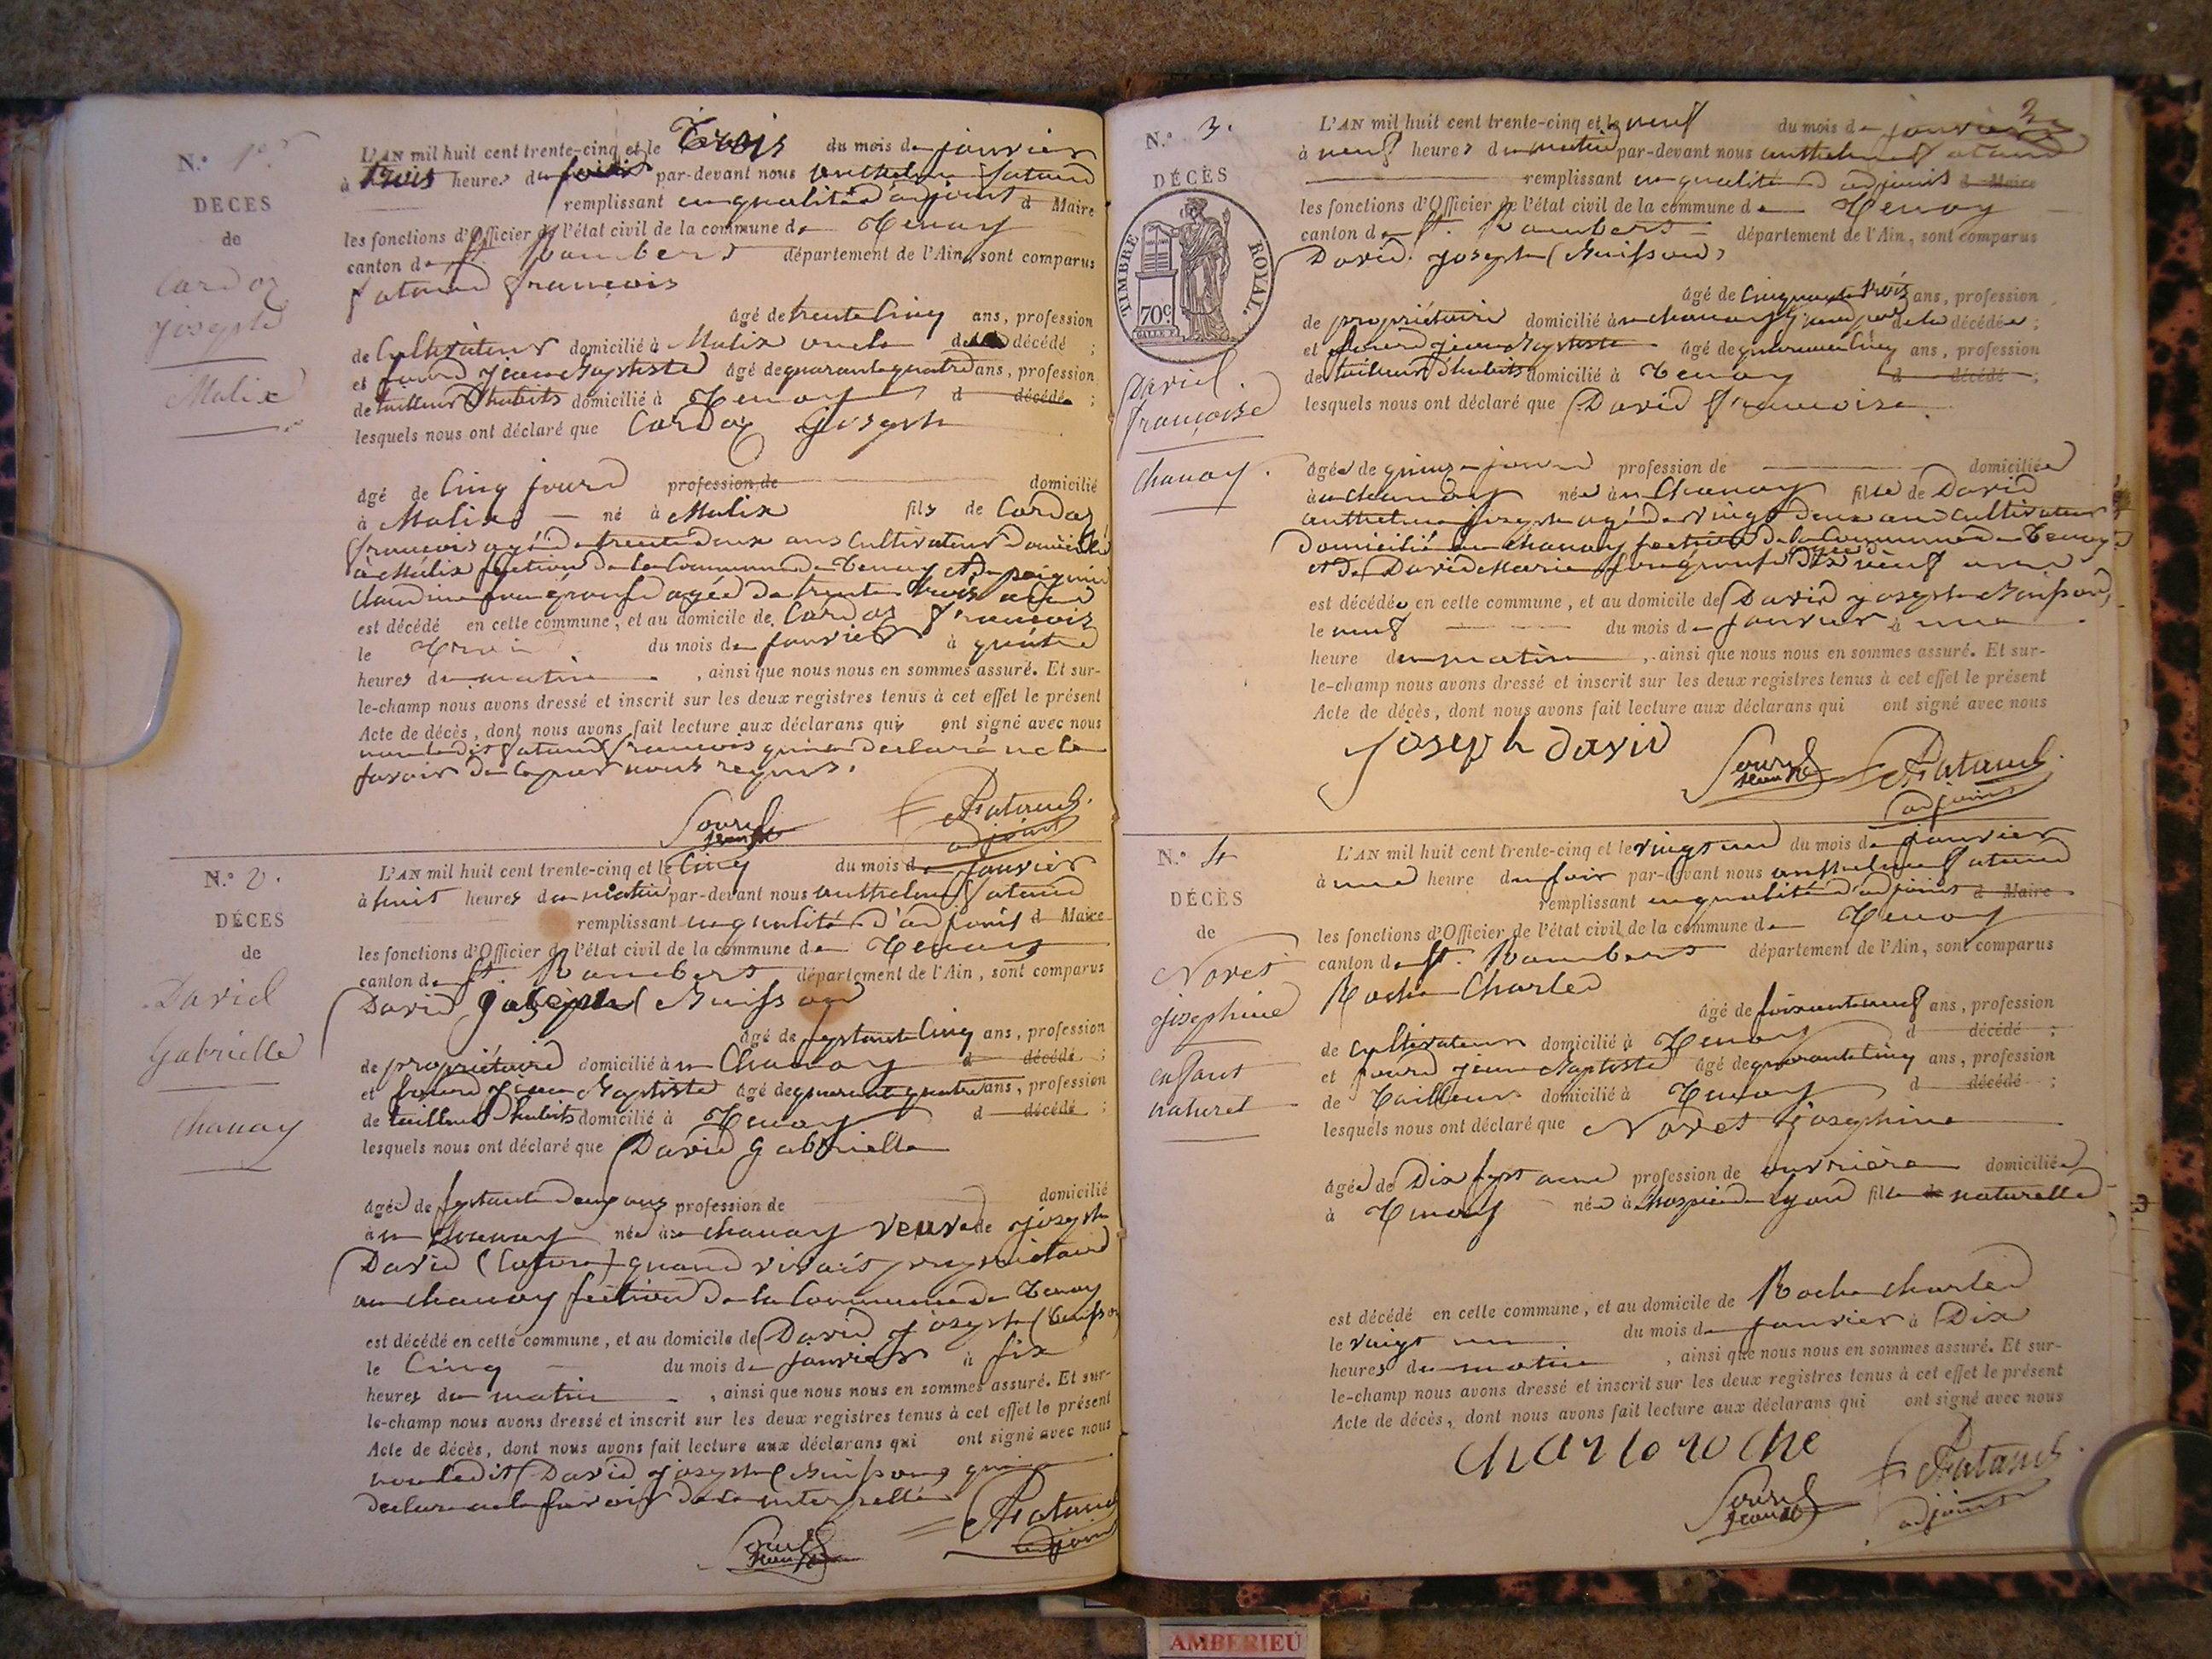 N.º 1er
DÉCES
de
Cardoz
joseph
Malix
L'AN mil huit cent trente-cinq et le Trois du mois de janvier
à trois heures du soir par-devant nous anthelme fatand
remplissant en qualité d'adjoint d Maire
les fonctions d'Officier de l'état civil de la commune de Tenay
canton de St. Rambert département de l'Ain, sont comparus
fatand françois
âgé de trente cinq ans, profession
de Cultivateur domicilié à Malix oncle du décédé ;
et jean Baptiste âgé de quarante quatre ans, profession
de tailleur d'habits domicilié à Tenay d décédé ;
lesquels nous ont déclaré que Cardoz Joseph
âgé de Cinq jours profession de domicilié
à Malix né à Malix fils de Cardoz
françois agé de trente deux ans Cultivateur domicilié
à Malix section de la Commune de Tenay et de
Claudine agée de trente trois ans
est décédé en cette commune, et au domicile de Cardoz françois
le Trois du mois de janvier à quatre
heures du matin , ainsi que nous nous en sommes assuré. Et sur-
le-champ nous avons dressé et inscrit sur les deux registres tenus à cet effet le présent
Acte de décès, dont nous avons fait lecture aux déclarans qui ont signé avec nous
non ledit fatand françois qui a declaré ne le
savoir de ce par nous requis.
Jean
Fatand
adjoint
N.º 2.
DÉCES
de
David
Gabrielle
Chanay
L'AN mil huit cent trente-cinq et le Cinq du mois de janvier
à huit heures du matin par-devant nous anthelme fatand
remplissant en qualité d'adjoint d Maire
les fonctions d'Officier de l'état civil de la commune de Tenay
canton de St. Rambert département de l'Ain, sont comparus
David joseph (Buisson
âgé de septante Cinq ans, profession
de propriétaire domicilié à en Chanay d décédé ;
et jean Baptiste âgé de quarante quatre ans, profession
de tailleur d'habits domicilié à Tenay d décédé ;
lesquels nous ont déclaré que David Gabrielle
âgée de septante deux ans profession de domicilié
à en Chanay née à en chanay veuve de joseph
David quand vivait propriétaire
en chanay section de la Commune de Tenay
est décédé en cette commune, et au domicile de David joseph (Buisson
le Cinq du mois de janvier à six
heures du matin , ainsi que nous nous en sommes assuré. Et sur-
le-champ nous avons dressé et inscrit sur les deux registres tenus à cet effet le présent
Acte de décès, dont nous avons fait lecture aux déclarans qui ont signé avec nous
non ledit David joseph (Buisson, qui a
declaré ne le savoir de ce interpellé
Jean
Fatand
adjoint
N.º 3.
DÉCÈS
TIMBRE ROYAL.
70c
David
françoise
Chanay.
L'AN mil huit cent trente-cinq et le neuf du mois de janvier
à neuf heures du matin par-devant nous anthelme fatand
remplissant en qualité d'adjoint d Maire
les fonctions d'Officier de l'état civil de la commune de Tenay
canton de St. Rambert département de l'Ain, sont comparus
David joseph (Buisson)
âgé de Cinquante trois ans, profession
de propriétaire domicilié à en chanay grand père de la décédée ;
et jean Baptiste âgé de quarante Cinq ans, profession
de tailleur d'habits domicilié à Tenay d décédé ;
lesquels nous ont déclaré que David françoise
âgée de quinze jours profession de domiciliée
à en chanay née à en Chanay fille de David
anthelme joseph agé de vingt deux ans Cultivateur
domicilié en chanay section de la Commune de Tenay
et de David Marie agée de Dix neuf ans
est décédée, en cette commune, et au domicile de David joseph Buisson,
le neuf du mois de janvier à une
heure du matin , ainsi que nous nous en sommes assuré. Et sur-
le-champ nous avons dressé et inscrit sur les deux registres tenus à cet effet le présent
Acte de décès, dont nous avons fait lecture aux déclarans qui ont signé avec nous
Joseph david
Jean
Fatand
adjoint
N.º 4
DÉCÈS
de
Novet
josephine
enfant
naturel
L'AN mil huit cent trente-cinq et le vingt un du mois de janvier
à une heure du soir par-devant nous anthelme fatand
remplissant en qualité d'adjoint d Maire
les fonctions d'Officier de l'état civil de la commune de Tenay
canton de St. Rambert département de l'Ain, sont comparus
Roche Charles
âgé de soixante neuf ans, profession
de cultivateur domicilié à Tenay d décédé ;
et jean Baptiste âgé de quarante Cinq ans, profession
de Tailleur domicilié à Tenay d décédé ;
lesquels nous ont déclaré que Novet josephine
âgée de Dix sept ans profession de ouvrière domiciliée
à Tenay née à Lyon fille de naturelle
est décédé en cette commune, et au domicile de Roche Charles
le vingt un du mois de janvier à Dix
heures du matin , ainsi que nous nous en sommes assuré. Et sur-
le-champ nous avons dressé et inscrit sur les deux registres tenus à cet effet le présent
Acte de décès, dont nous avons fait lecture aux déclarans qui ont signé avec nous
charle roche
Jean
Fatand
adjoint
AMBERIEU